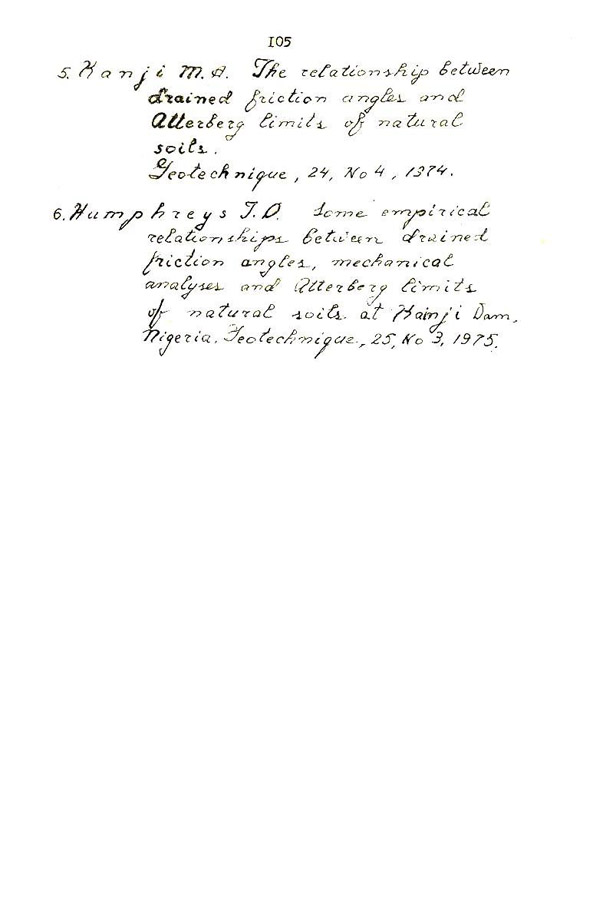 105
5. Kanji M.A. The relationship between
drained friction angles and
Atterberg limits of natural
soils.
Geotechnique, 24, No 4, 1974.
6. Humphreys J.D. Some empirical
relationships between drained
friction angles, mechanical
analyses and Atterberg limits
of natural soils at Kainji Dam,
Nigeria. Geotechnique, 25, No 3, 1975.